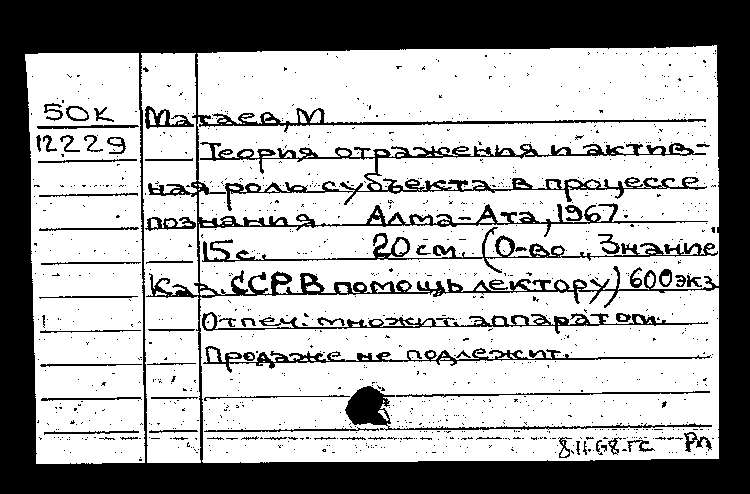 50К Матаев, М
12229 Теория отражения и актив-
ная роль субъекта в процессе
познания Алма-Ата, 1967.
15с. 20см. (О-во „Знание"
Каз. ССР. В помощь лектору) 600экз
Отпеч. множит. аппаратом.
Продаже не подлежит.
8.II.68.гс Рп